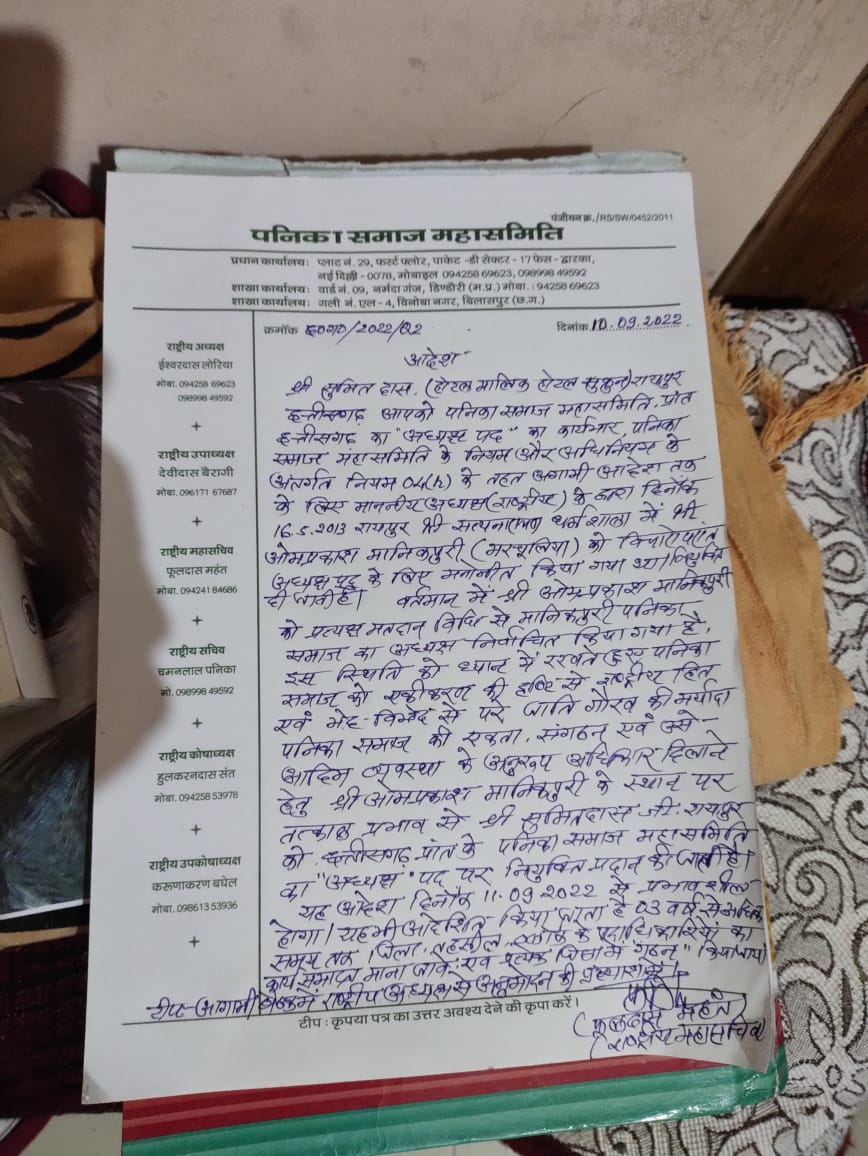 पंजीयन क्र./RS/SW/0452/2011
पनिका समाज महासमिति
प्रधान कार्यालय: प्लाट नं. 29, फर्स्ट फ्लोर, पाकेट -डी सेक्टर - 17 फेस - द्वारका,
नई दिल्ली - 0078, मोबाइल 094258 69623, 098998 49592
शाखा कार्यालय: वार्ड नं. 09, नर्मदा गंज, डिण्डौरी (म.प्र.) मोबा. : 94258 69623
शाखा कार्यालय: गली नं. एल - 4, विनोबा नगर, बिलासपुर (छ.ग.)
क्रमाँक छ0ग0/2022/02
दिनांक 10.09.2022
राष्ट्रीय अध्यक्ष
ईश्वरदास लोरिया
मोबा. 094258 69623
098998 49592
राष्ट्रीय उपाध्यक्ष
देवीदास बैरागी
मोबा. 096171 67687
राष्ट्रीय महासचिव
फूलदास महंत
मोबा. 094241 84686
राष्ट्रीय सचिव
चमनलाल पनिका
मो. 098998 49592
राष्ट्रीय कोषाध्यक्ष
हुलकरनदास संत
मोबा. 094258 53978
राष्ट्रीय उपकोषाध्यक्ष
करूणाकरण बघेल
मोबा. 098613 53936
आदेश
श्री सुमित दास, (होटल मालिक होटल सुकुन) रायपुर
छत्तीसगढ़ आपको पनिका समाज महासमिति, प्रांत
छत्तीसगढ़ का "अध्यक्ष पद" का कार्यभार, पनिका
समाज महासमिति के नियम और अधिनियम के
अंतर्गत नियम 04(h) के तहत अगामी आदेश तक
के लिए माननीय अध्यक्ष (राष्ट्रीय) के द्वारा दिनाँक
16.5.2013 रायपुर श्री सत्यनारायण धर्मशाला में श्री
ओमप्रकाश मानिकपुरी ( ) को विचारोपरांत
अध्यक्ष पद के लिए मनोनीत किया गया था। नियुक्ति
दी जाती है। वर्तमान में श्री ओमप्रकाश मानिकपुरी
को प्रत्यक्ष मतदान विधि से मानिकपुरी पनिका
समाज का अध्यक्ष निर्वाचित किया गया है,
इस स्थिति को ध्यान में रखते हुए पनिका
समाज को एकीकरण की दृष्टि से राष्ट्रीय हित
एवं भेद-विभेद से परे जाति गौरव की मर्यादा
पनिका समाज की एकता, संगठन एवं उसे-
आदिम व्यवस्था के अनुरूप अधिकार दिलाने
हेतु श्री ओमप्रकाश मानिकपुरी के स्थान पर
तत्काल प्रभाव से श्री सुमितदास जी. रायपुर
को. छत्तीसगढ़ प्रांत के पनिका समाज महासमिति
का "अध्यक्ष" पद पर नियुक्ति प्रदान की जाती है।
यह आदेश दिनाँक 11.09.2022 से प्रभावशील
होगा। यह भी आदेशित किया जाता है 03 वर्ष से अधिक
समय तक जिला, तहसील, ब्लॉक के पदाधिकारियों का
कार्य समाप्त माना जावे. एवं प्रत्येक जिला में "गठन" किया जाय।
टीप-आगामी बैठक में राष्ट्रीय अध्यक्ष से अनुमोदन की प्रत्याशा में।
टीप : कृपया पत्र का उत्तर अवश्य देने की कृपा करें।
(फूलदास महंत)
(राष्ट्रीय महासचिव)